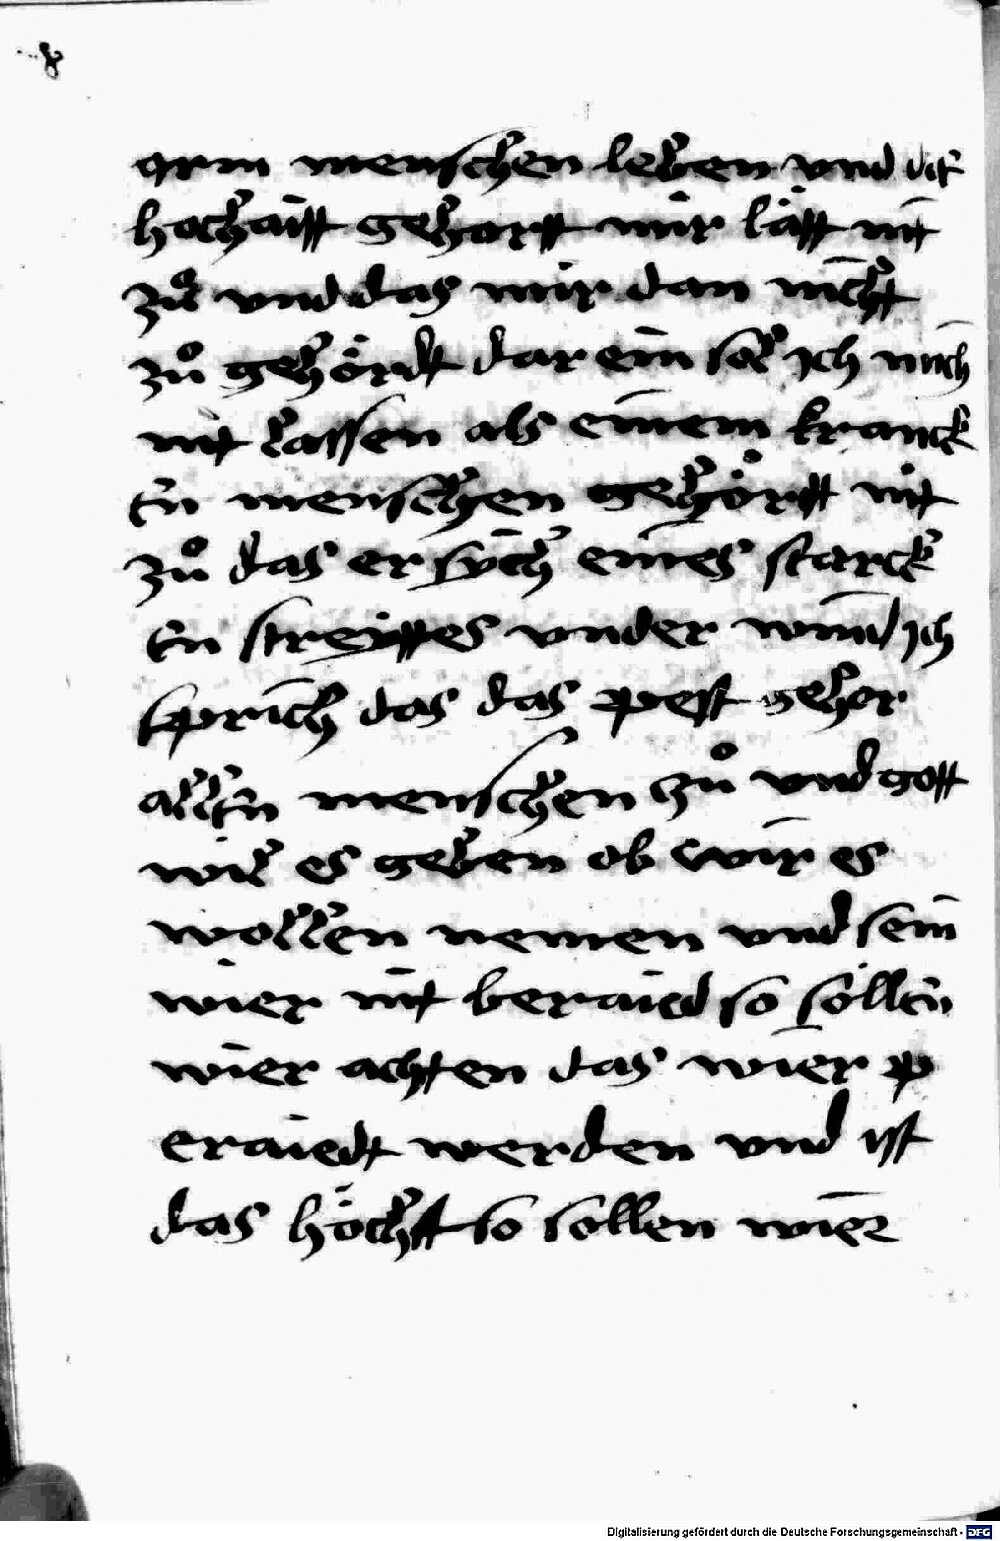 arm menschen leben vnd die
hochaitt gehortt mir laitt nit
zů vnd das mir dan nicht
zů gehördt dar ein sol ich mich
nit lassen als einem kranck
en menschen gehörtt nit
zů das er sich eines starck
en streyttes vnder wind ich
sprich das das pest gehor
allen menschen zů vnd gott
wil es geben ob wir es
wollen nemen vnd sein
wier nit beraied so söllen
wier achten das wier p
eraiedt werden vnd ist
das höchst so söllen wier
Digitalisierung gefördert durch die Deutsche Forschungsgemeinschaft - DFG